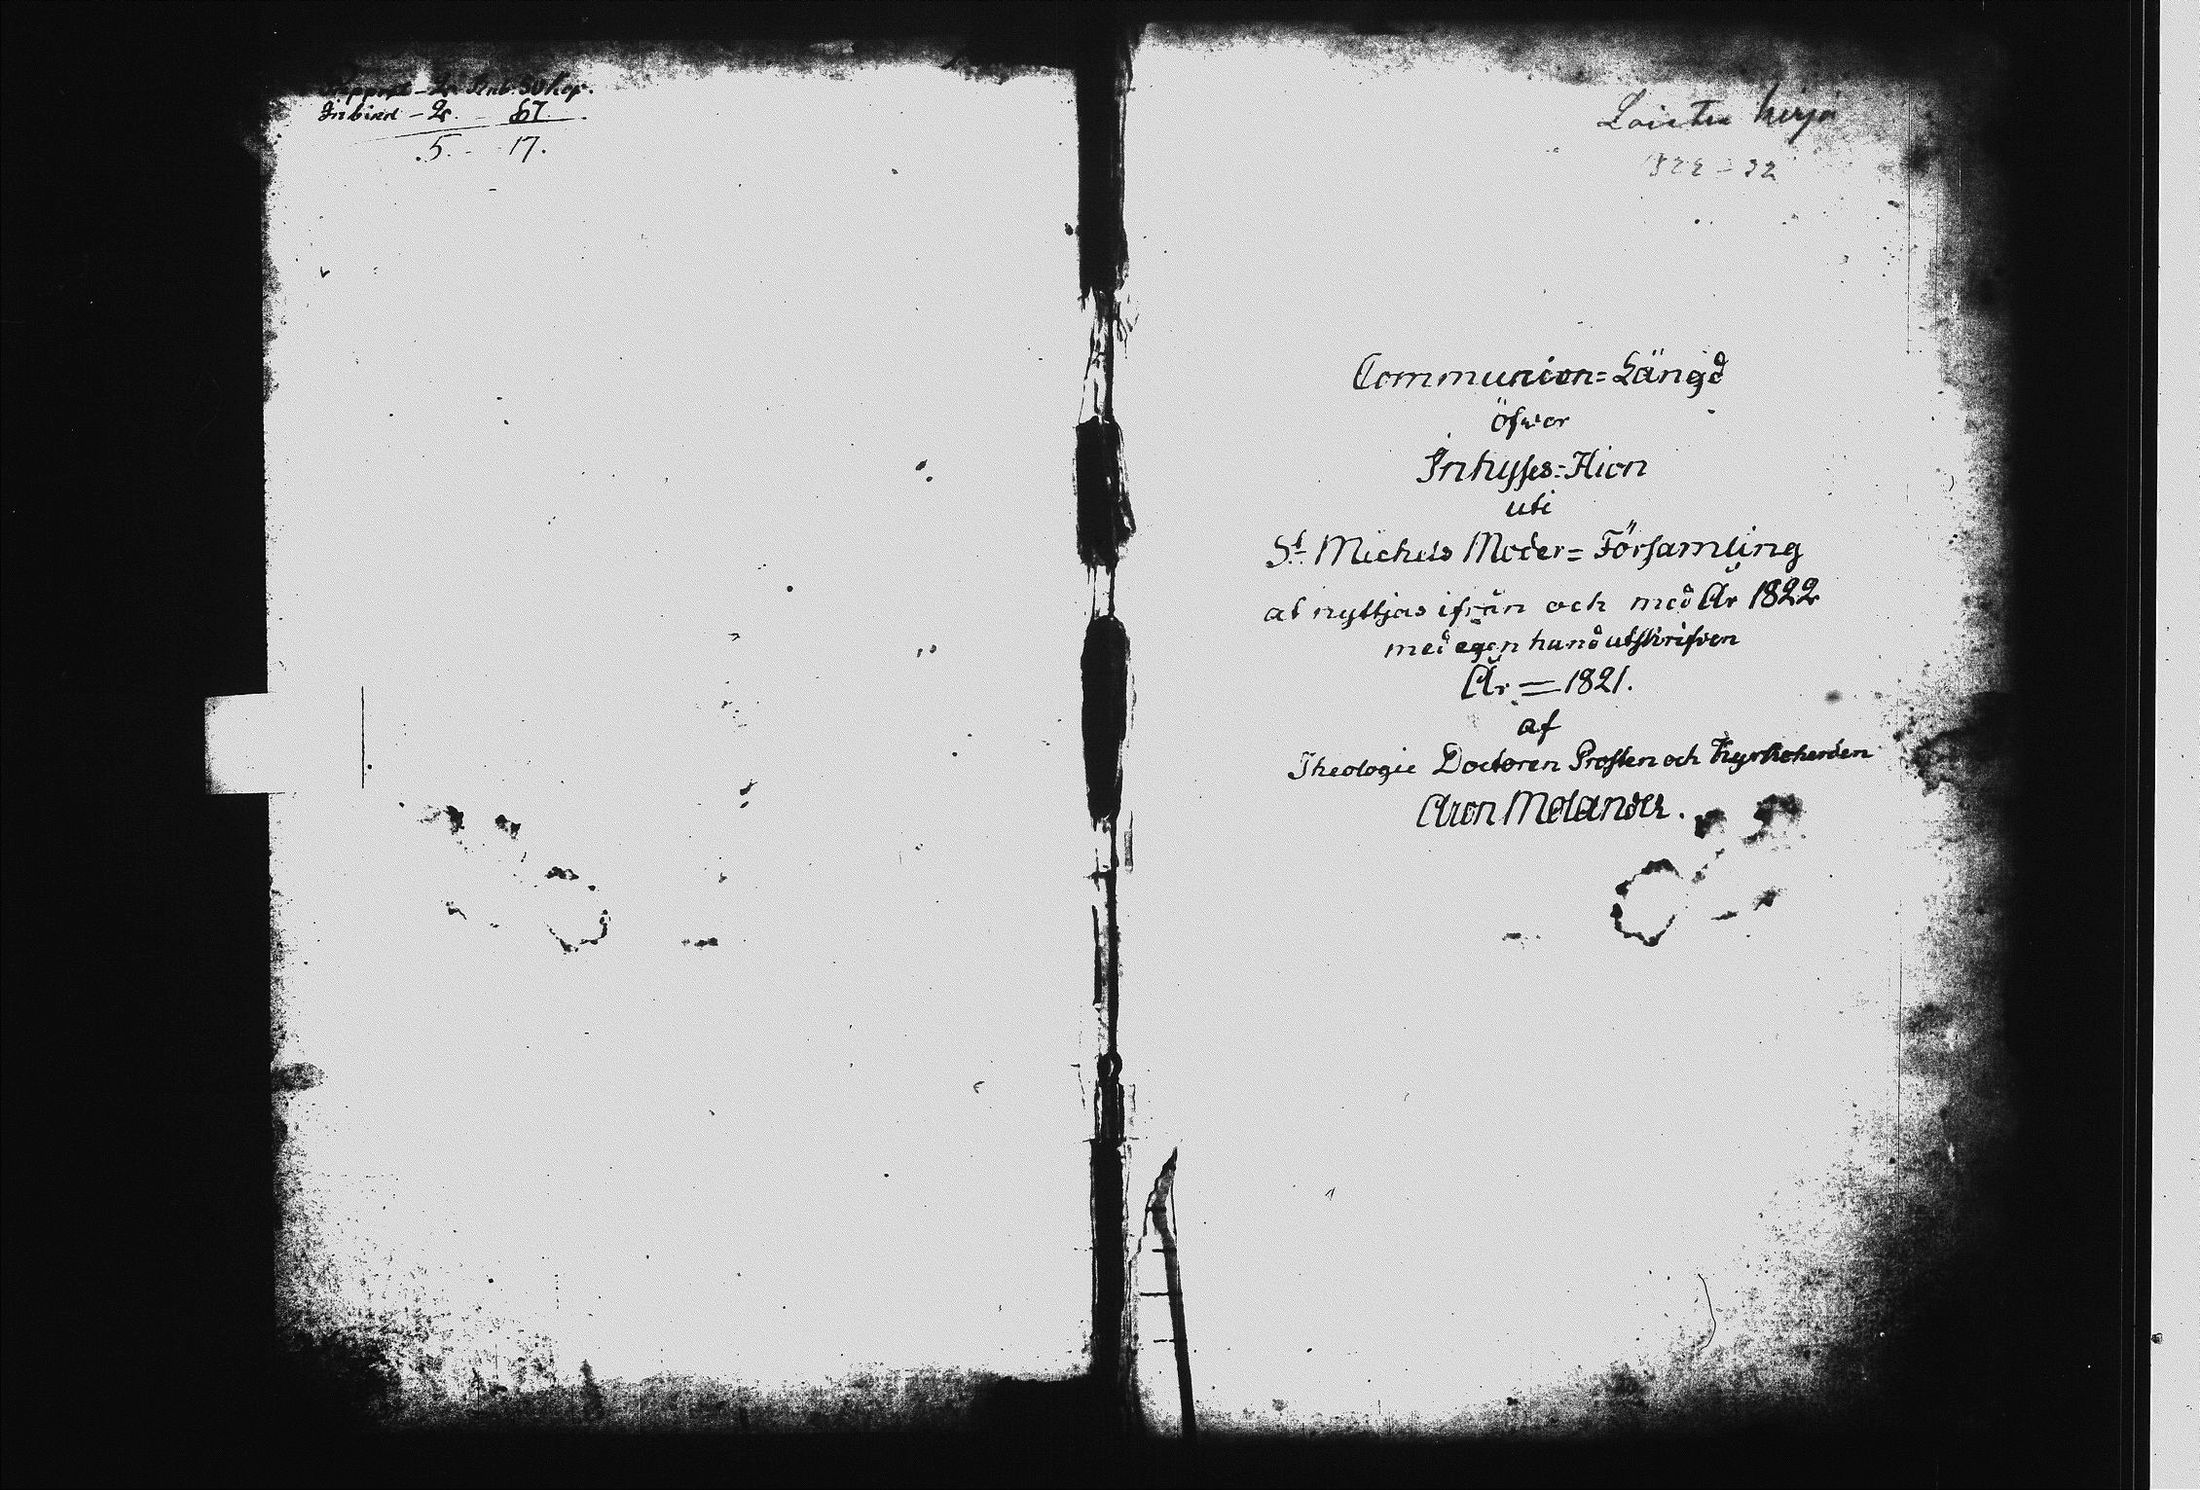 Papperet - 2r Rub. 50 kop.
Inbind - 2r. - 67.
.5. - 17.
Loisten kirja
1822 - 32
Communion=Längd
öfwer
Inhysses=Hion
uti
St Michels Moder=Församling
at nyttjas ifrån och med År 1822
med egen hand utskrifven
År = 1821.
af
Theologie Doctoren Prosten och Kyrkoherden
Aron Molander.